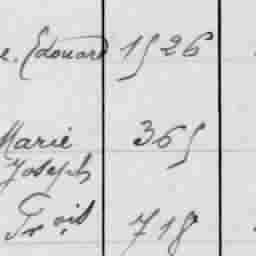 e. Edouard 1526
Marie 365
Joseph
Frçois 718